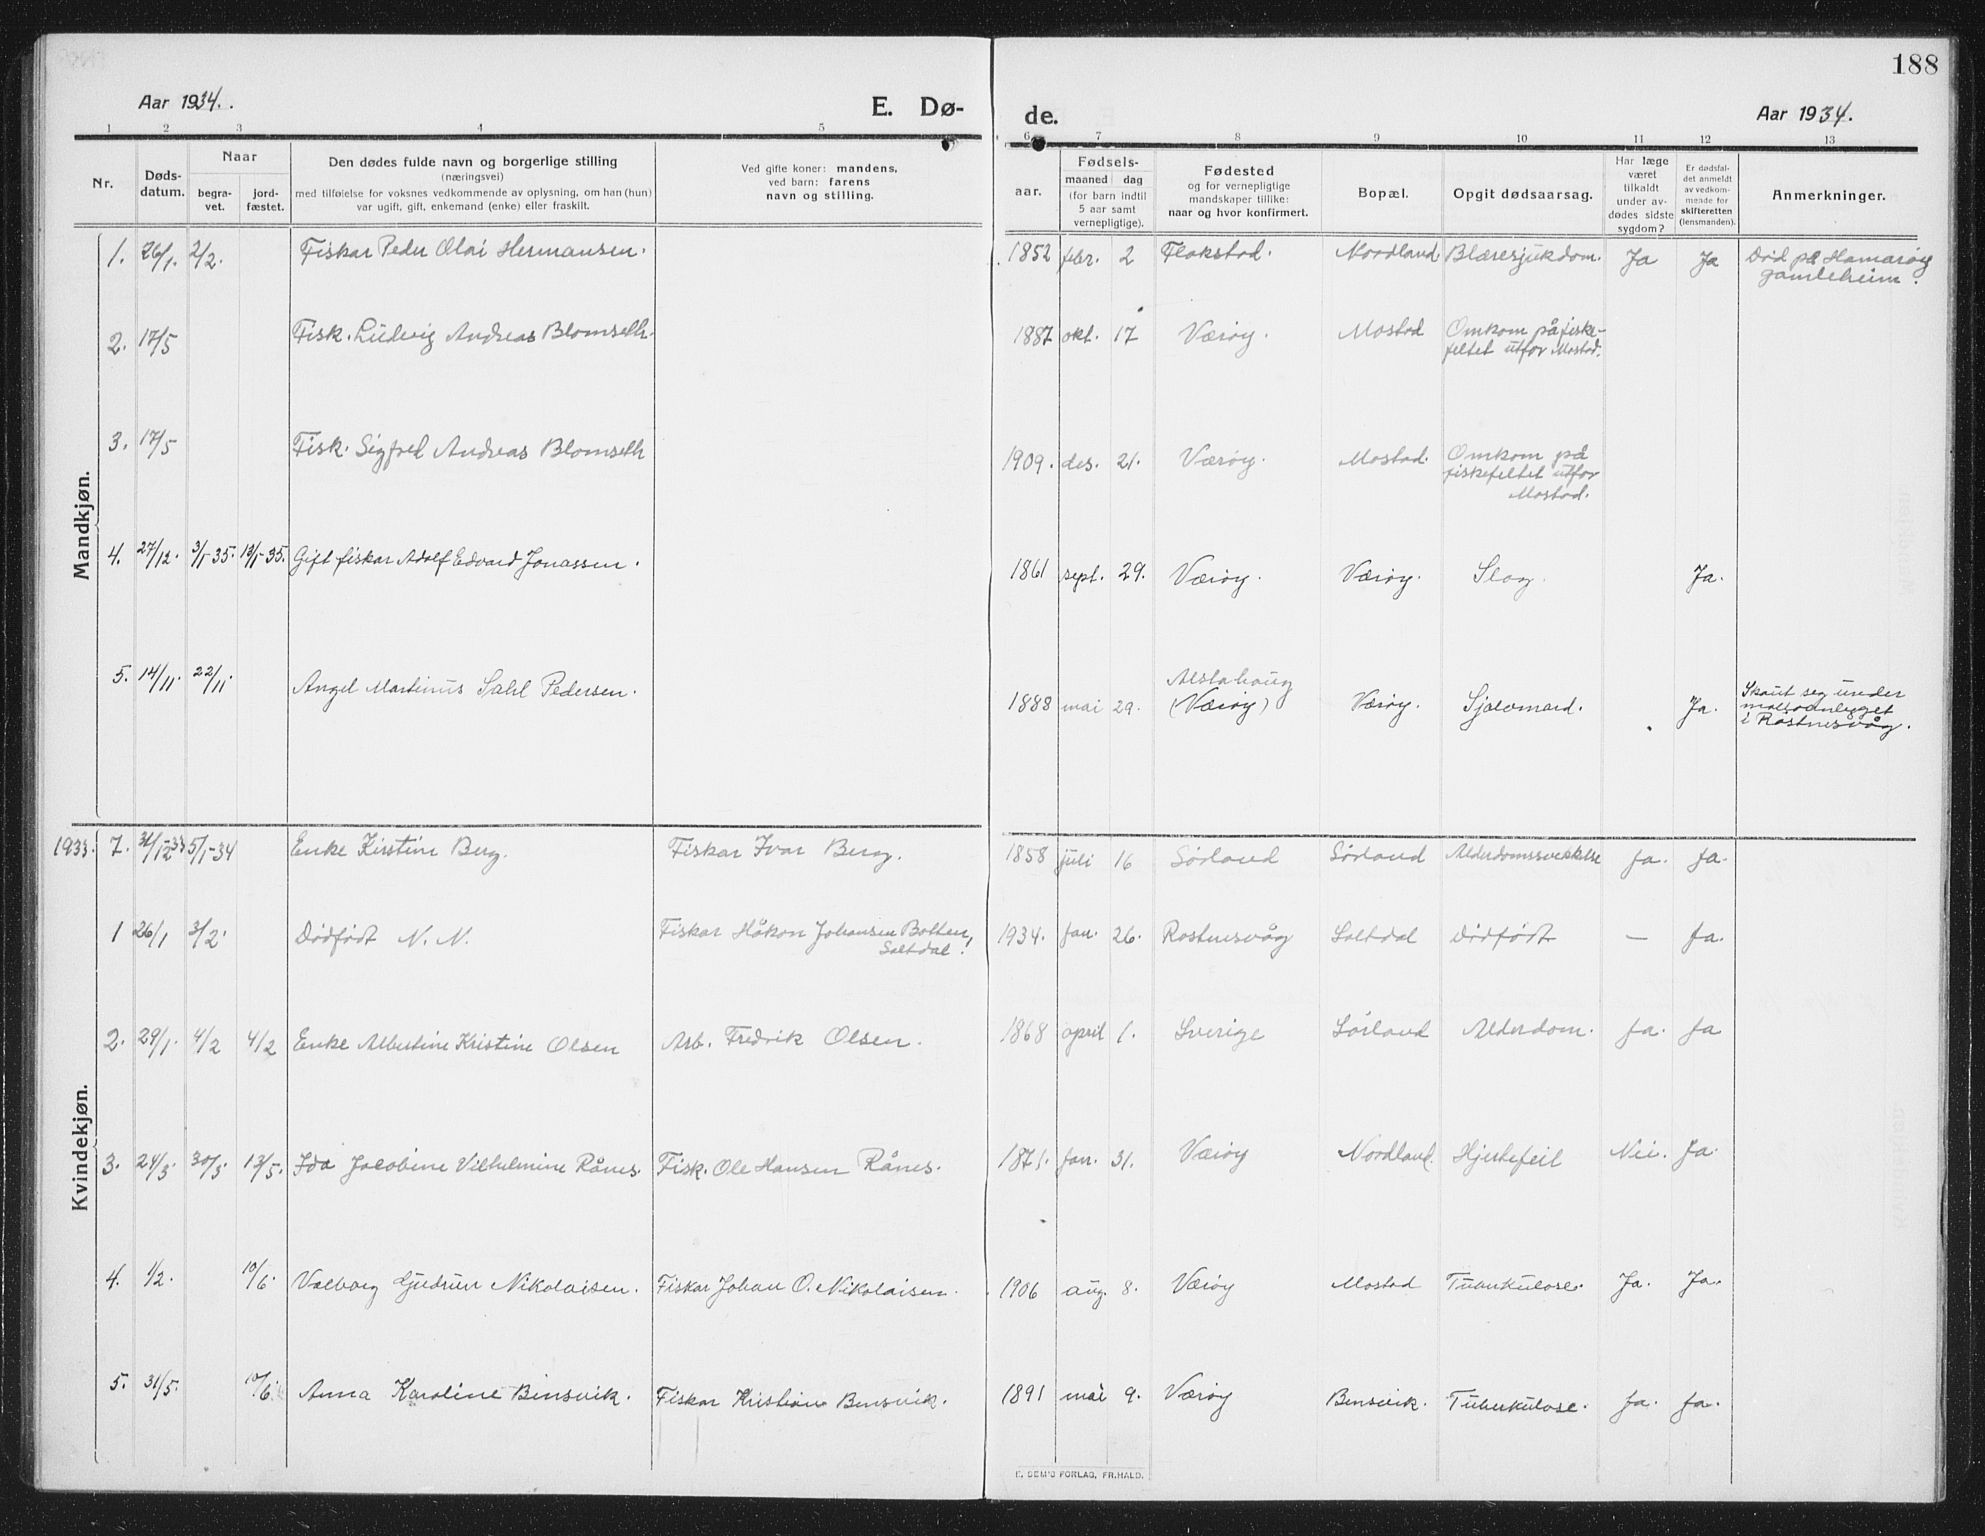 188
Aar 1934.
E. Dø-
de.
Aar 1934.
1 2 3 4 5 6 7 8 9 10 11 12 13
Nr.
Døds-
datum.
Naar
begra-
vet.
jord-
fæstet.
Den dødes fulde navn og borgerlige stilling
(næringsvei)
med tilføielse for voksnes vedkommende av oplysning, om han (hun)
var ugift, gift, enkemand (enke) eller fraskilt.
Ved gifte koner: mandens,
ved barn: farens
navn og stilling.
Fødsels-
aar.
maaned dag
(for barn indtil
5 aar samt
vernepligtige).
Fødested
og for vernepligtige
mandskaper tillike:
naar og hvor konfirmert.
Bopæl.
Opgit dødsaarsag.
Har læge
været
tilkaldt
under av-
dødes sidste
sygdom?
Er dødsfal-
det anmeldt
av vedkom-
mende for
skifteretten
(lensmanden).
Anmerkninger.
Mandkjøn.
1. 26/1. 2/2. Fiskar Peder Olai Hermansen. 1852 febr. 2 Flakstad. Nordland. Blæresjukdom. Ja Ja Død på Hamarøy
gamleheim.
2. 17/5 Fisk. Ludvig Andreas Blomseth. 1887 okt. 17 Værøy. Mostad Omkom på fiske-
feltet utfor Mostad.
3. 17/5 Fisk. Sigfred Andreas Blomseth 1909. des. 21. Værøy. Mostad. Omkom på
fiskefeltet utfor
Mostad.
4. 27/12. 3/1-35. 13/1-35. Gift fiskar Adolf Edvard Jonassen. 1861 sept. 29. Værøy. Værøy. Slag. Ja.
5. 14/11. 22/11. Angel Martinus Sahl Pedersen. 1888 mai 29. Alstahaug
(Værøy) Værøy. Sjølvmord. Ja. Skaut seg under
i Røstnesvåg.
Kvindekjøn.
1933. 7. 31/12-33 5/1-34 Enke Kirstine Berg. Fiskar Ivar Berg. 1858 juli 16 Sørland Sørland Alderdomssvekkelse Ja. Ja.
1 26/1 3/2. Dødfødt N. N. Fiskar Håkon Johansen Botten,
Saltdal! 1934. Jan. 26. Røstnesvåg Saltdal Dødfødt — Ja.
2. 29/1. 4/2 4/2 Enke Albertine Kristine Olsen Arb. Fredrik Olsen. 1868 april 1. Sverige Sørland Alderdom. Ja. Ja
3. 24/3. 30/3 13/5. Ida Jacobine Vilhelmine Rånes. Fisk. Ole Hansen Rånes. 1871. Jan. 31. Værøy Nordland. Hjertefeil Nei. Ja.
4. 1/2. 10/6. Valborg Gjudrun Nikolaisen. Fiskar Johan O. Nikolaisen. 1906 aug. 8. Værøy Mostad Tuberkulose. Ja. Ja.
5. 31/5. 10/6. Anna Karoline Binsvik. Fiskar Kristian Bensvik. 1891 mai 9. Værøy Bensvik. Tuberkulose. Ja. Ja.
E. SEM'S FORLAG, FR.HALD.